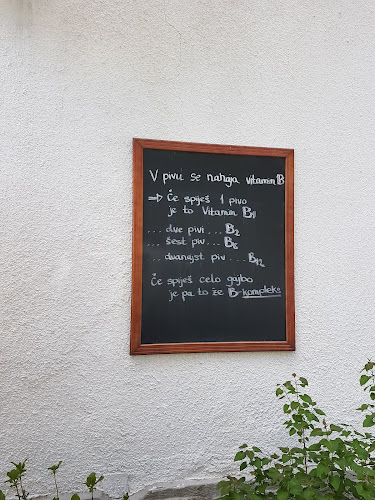 V pivu se nahaja vitamin B
⇒ Če spiješ 1 pivo
je to Vitamin B1
... dve pivi ... B2
... šest piv ... B6
... dvanajst piv ... B12
Če spiješ celo gajbo
je pa to že B-kompleks